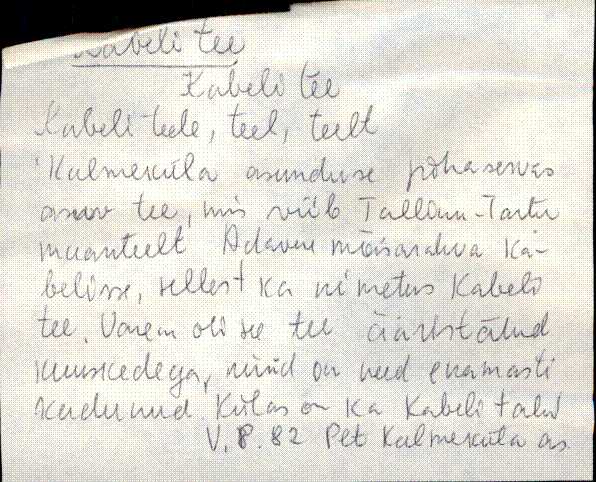 Kabeli tee
Kabeli tee
Kabeli teele, teel, teelt
Kalmeküla asunduse põhaservas
asuv tee, mis viib Tallinn-Tartu
maanteelt Adavere mõisarahva ka-
belisse, sellest ka nimetus Kabeli
tee. Varem oli see tee ääristatud
kuuskedega, nüüd on need enamasti
kadunud. Külas on ka Kabeli talu
V. 8. 82 Plt Kalmeküla as.